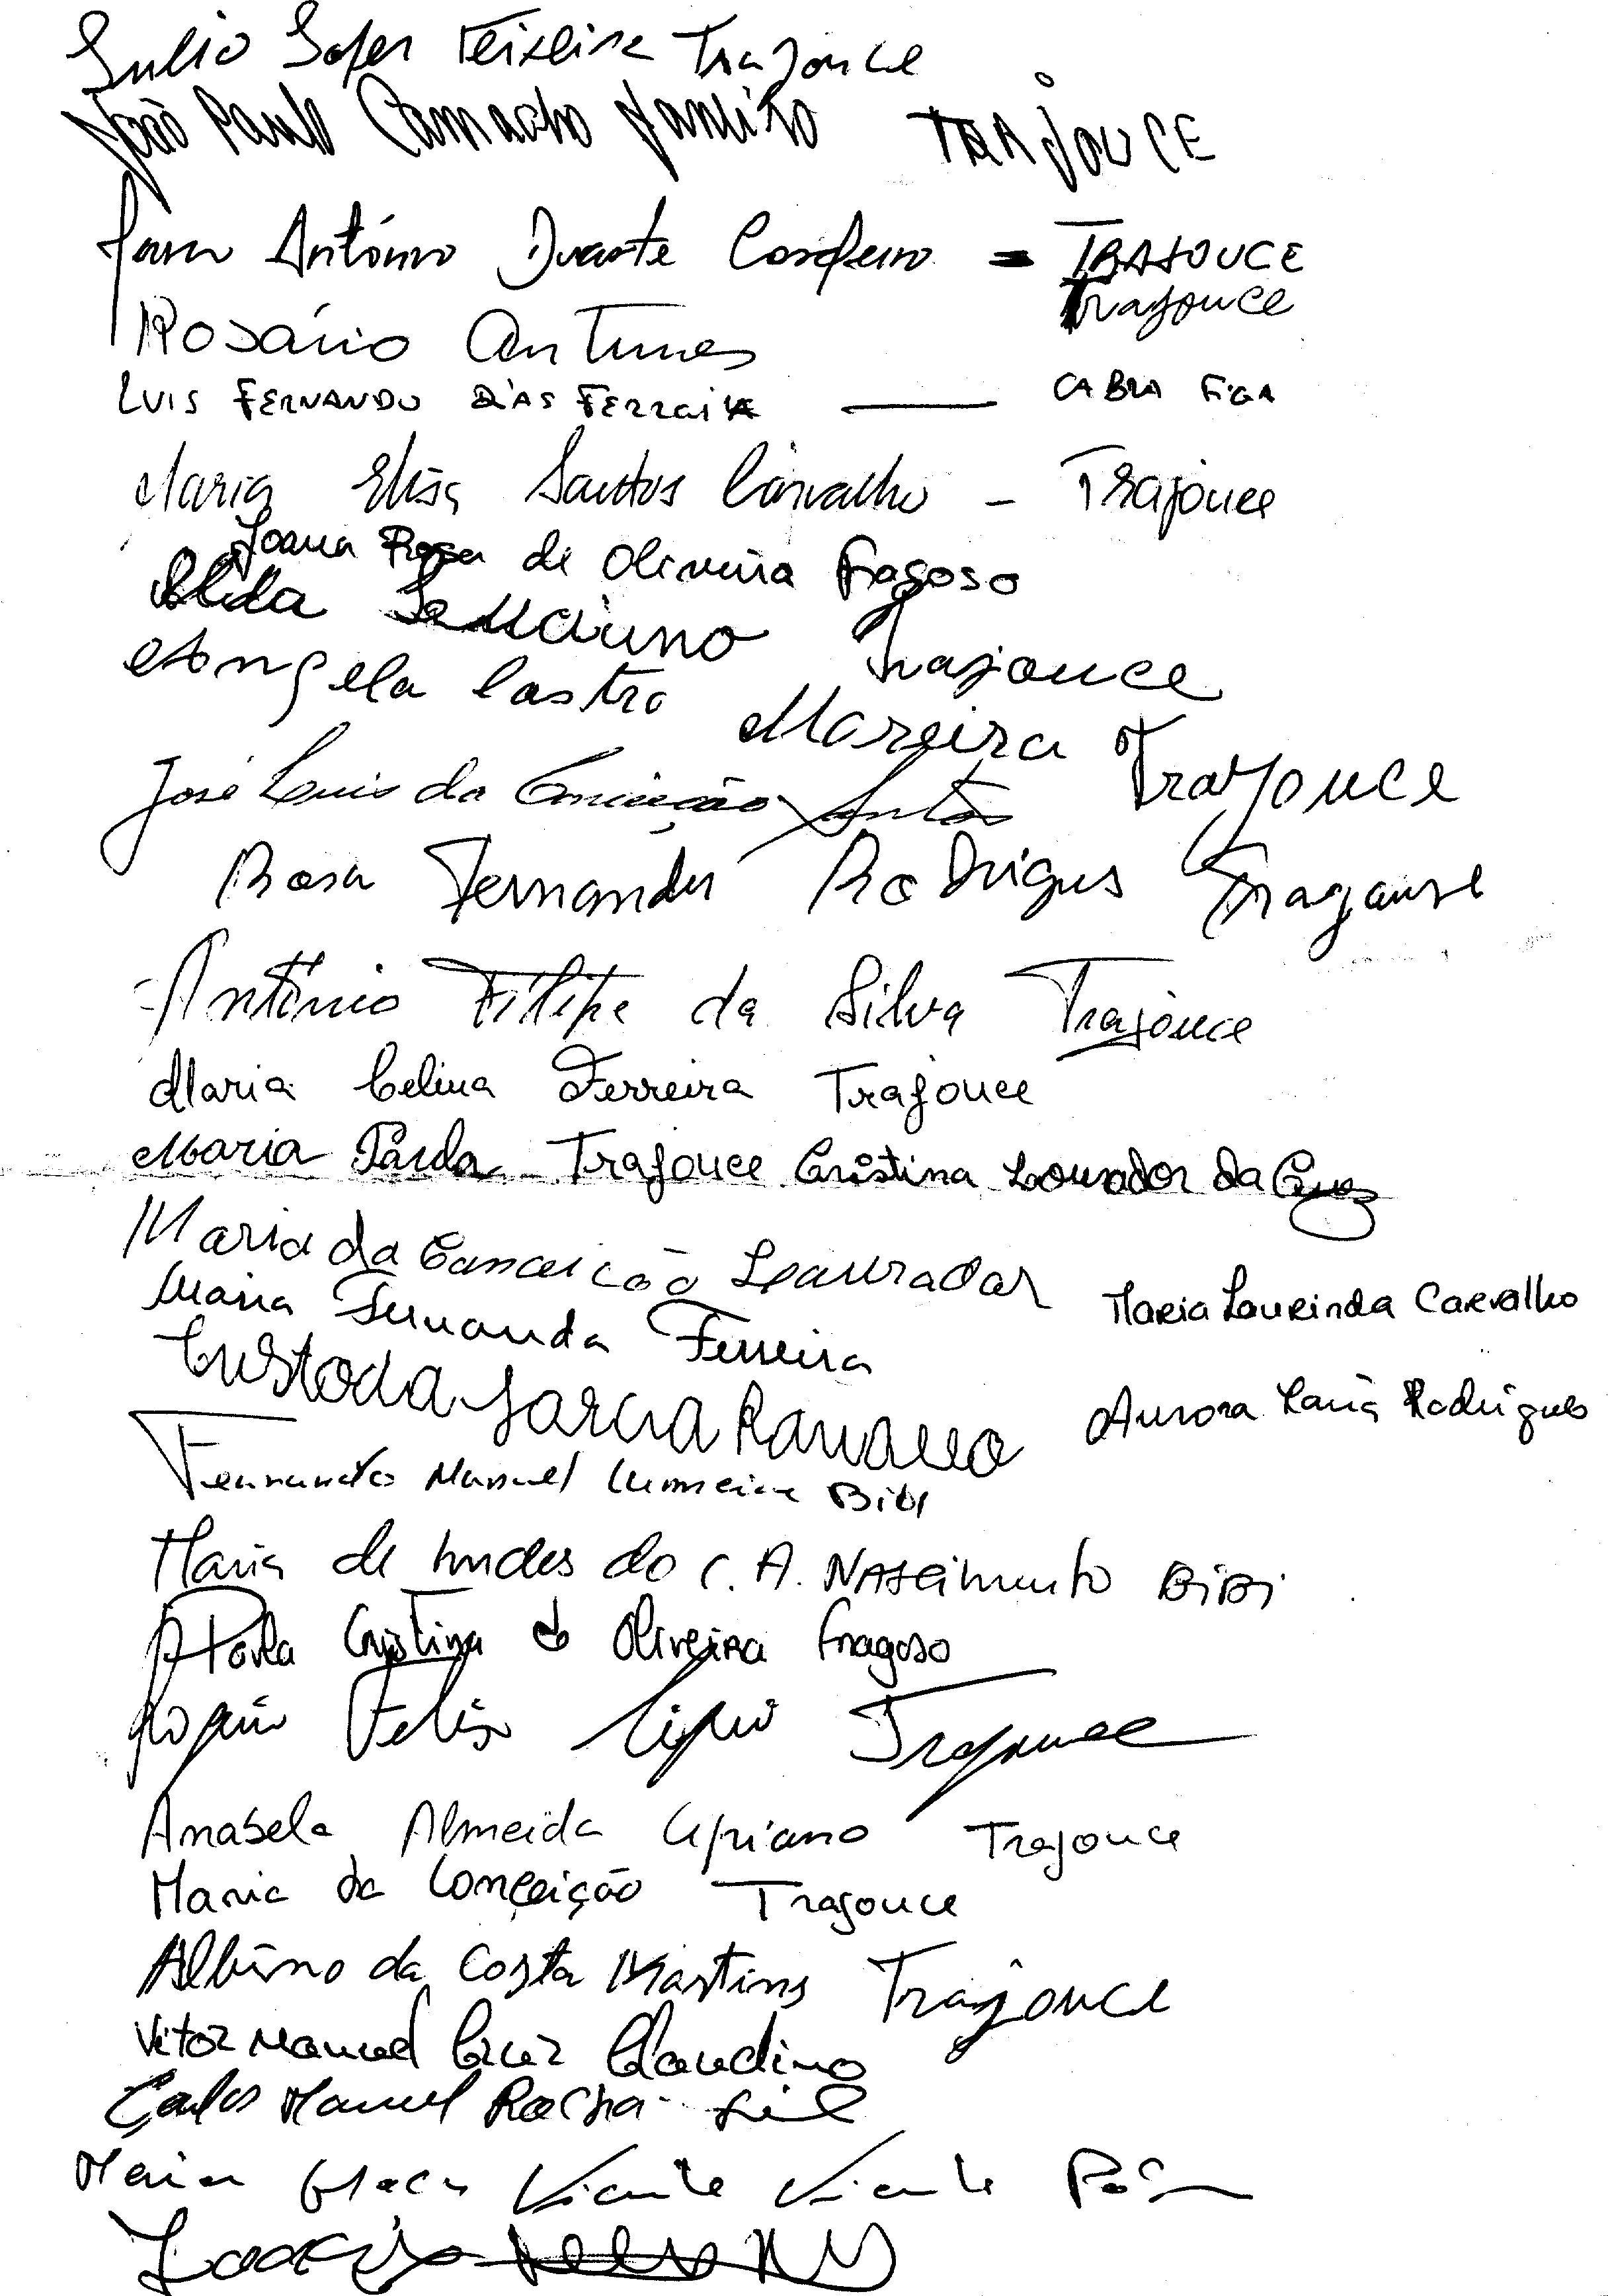 Julio Teixeira Trajouce
João Paulo Camacho TRAJOUCE
António Duarte Cordeiro = TRAJOUCE
Trajouce
Rosário Antunes
LUIS FERNANDO DIAS FERREIRA — CABRA FIGA
Maria Elisa Santos Carvalho - Trajouce
Joana Rosa de Oliveira Fragoso
Alda Trajouce
Angela Castro Moreira Trajouce
José Luis da Conceição Santos
Rosa Fernandes Rodrigues
António Filipe da Silva Trajouce
Maria Celina Ferreira Trajouce
Maria Paula - Trajouce Cristina Lourador da Cruz
Maria da Conceição
Maria Fernanda Ferreira Maria Laurinda Carvalho
Garcia
Aurora Maria Rodrigues
Fernando Manuel Bibi
Maria de do C. A. Nascimento BiBi
Paula Cristina de Oliveira Fragoso
Felix Trajouce
Anabela Almeida Cipriano Trajouce
Maria da Conceição Trajouce
Albino da Costa Martins Trajouce
Vitor Manuel Cruz Claudino
Carlos Manuel Rocha
Maria Vicente Vicente